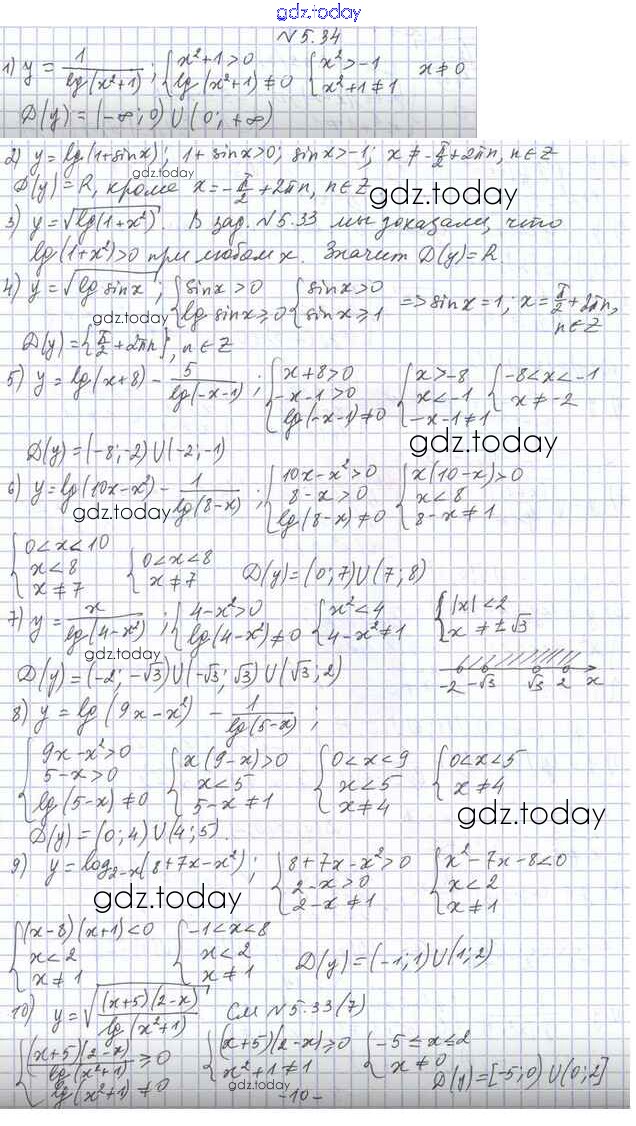 gdz.today
№5.34
1) y = 1/lg(x²+1) ; { x²+1>0 lg(x²+1)≠0 { x²>-1 x²+1≠1 x≠0
D(y) = (-∞; 0) U (0; +∞)
2) y=lg(1+sinx); 1+sinx>0; sinx>-1; x≠-π/2+2πn, n∈Z
gdz.today
D(y)=R, кроме x=-π/2+2πn, n∈Z
gdz.today
3) y=√lg(1+x²). В зад. №5.33 мы доказали, что
lg(1+x²)>0 при любом x. Значит D(y)=R.
4) y=√lg sinx ; { sinx>0 lg sinx≥0 { sinx>0 sinx≥1 => sinx=1; x=π/2+2πn, n∈Z
gdz.today
D(y)={π/2+2πn}, n∈Z
5) y=lg(x+8) - 5/lg(-x-1) ; { x+8>0 -x-1>0 lg(-x-1)≠0 { x>-8 x<-1 -x-1≠1 { -8<x<-1 x≠-2
gdz.today
D(y)=(-8;-2)U(-2;-1)
6) y=lg(10x-x²) - 1/lg(8-x) ; { 10x-x²>0 8-x>0 lg(8-x)≠0 { x(10-x)>0 x<8 8-x≠1
gdz.today
{ 0<x<10 x<8 x≠7 { 0<x<8 x≠7 D(y)=(0;7)U(7;8)
7) y= x/lg(4-x²) ; { 4-x²>0 lg(4-x²)≠0 { x²<4 4-x²≠1 { |x|<2 x≠±√3
gdz.today
D(y)=(-2; -√3)U(-√3; √3)U(√3; 2)
-2 -√3 √3 2 x
8) y=lg(9x-x²) - 1/lg(5-x) ;
{ 9x-x²>0 5-x>0 lg(5-x)≠0 { x(9-x)>0 x<5 5-x≠1 { 0<x<9 x<5 x≠4 { 0<x<5 x≠4
gdz.today
D(y)=(0;4)U(4;5).
9) y=log₂₋ₓ(8+7x-x²); { 8+7x-x²>0 2-x>0 2-x≠1 { x²-7x-8<0 x<2 x≠1
gdz.today
{ (x-8)(x+1)<0 x<2 x≠1 { -1<x<8 x<2 x≠1 D(y)=(-1;1)U(1;2)
10) y=√((x+5)(2-x)/lg(x²+1)) См №5.33(7)
{ (x+5)(2-x)/lg(x²+1) ≥0 lg(x²+1)≠0 { (x+5)(2-x)≥0 x²+1≠1 { -5≤x≤2 x≠0
gdz.today
D(y)=[-5;0)U(0;2]
-10-